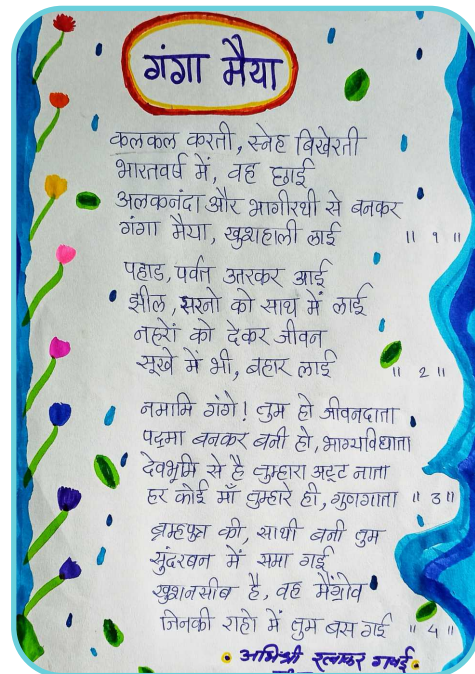 गंगा मैया
कलकल करती, स्नेह बिखेरती
भारतवर्ष में, वह छाई
अलकनंदा और भागीरथी से बनकर
गंगा मैया, खुशहाली लाई ॥ १ ॥
पहाड़, पर्वत उतरकर आई
झील, झरनो को साथ में लाई
नहरों को देकर जीवन
सूखे में भी, बहार लाई ॥ 2 ॥
नमामि गंगे! तुम हो जीवनदाता
पद्मा बनकर बनी हो, भाग्यविधाता
देवभूमि से है तुम्हारा अटूट नाता
हर कोई माँ तुम्हारे ही, गुणगाता ॥ 3 ॥
ब्रम्हपुत्र की, साथी बनी तुम
सुंदरबन में समा गई
खुशनसीब है, वह मेंग्रोव
जिनकी राहो में तुम बस गई ॥ 4 ॥
अभिश्री रत्नाकर गवई